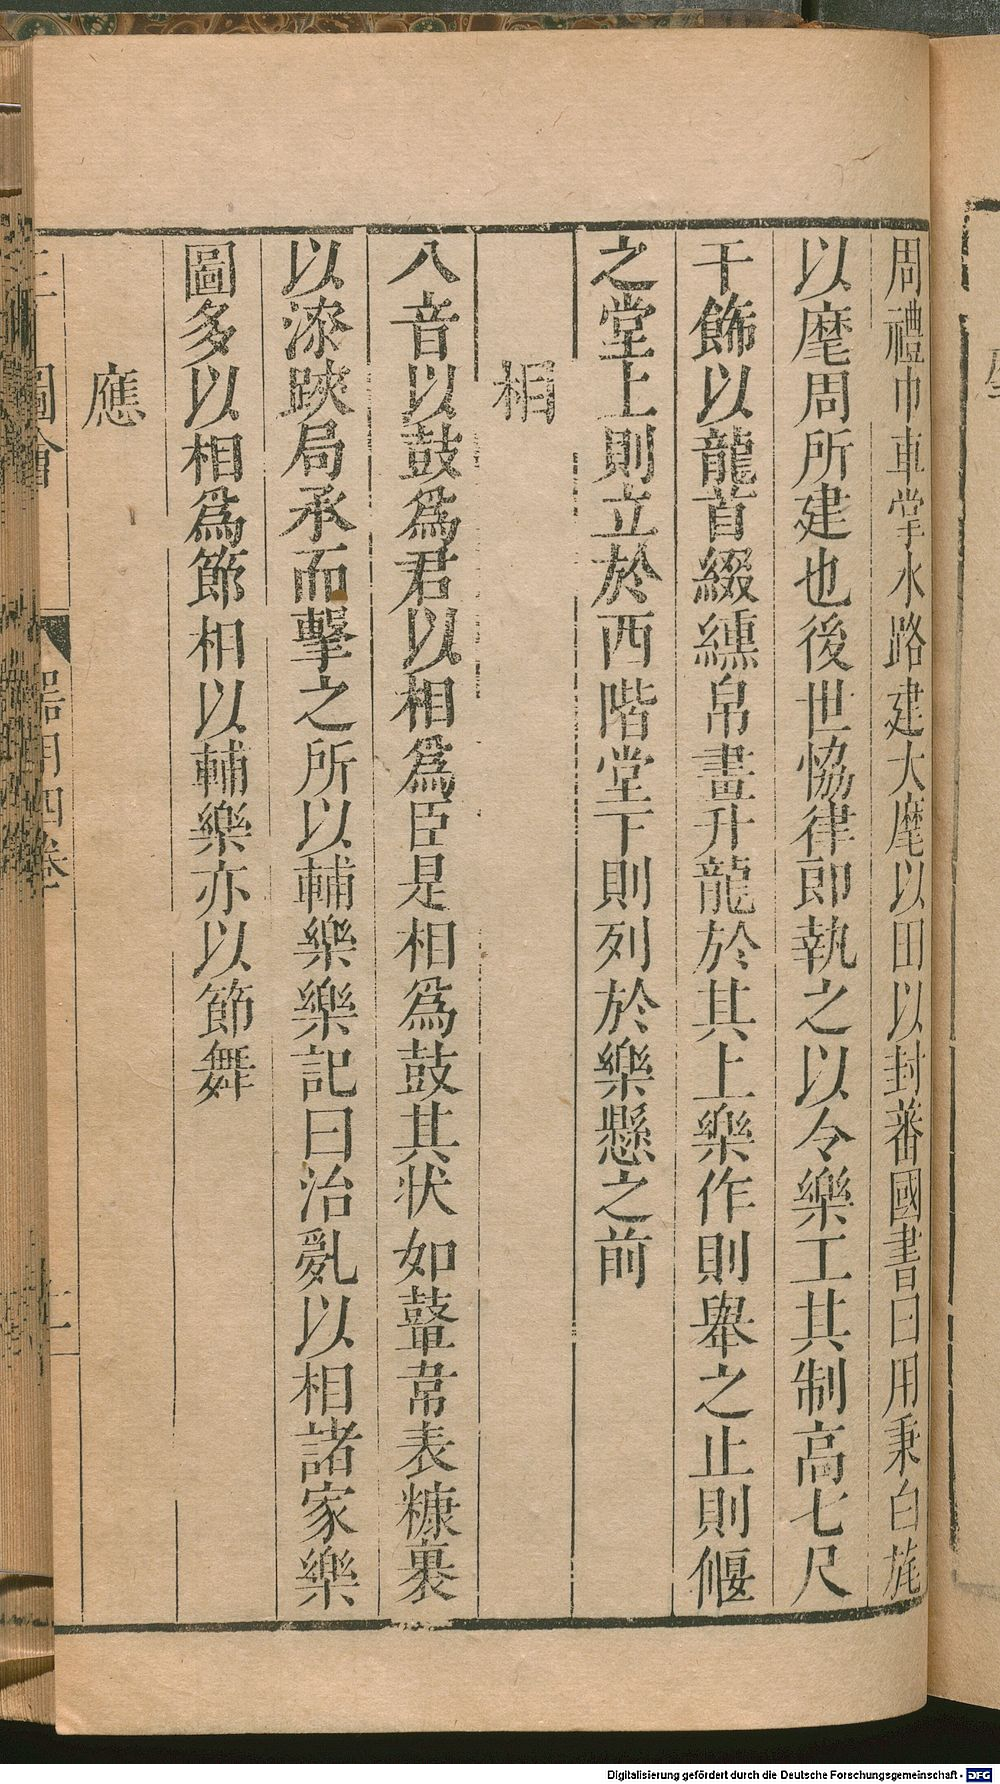 周禮巾車掌木路建大麾以田以封蕃國書曰用秉白旄
以麾周所建也後世恊律郎執之以令樂工其制高七尺
干飾以龍首綴纁帛畫升龍於其上樂作則舉之止則偃
之堂上則立於西階堂下則列於樂懸之前
相
八音以鼓爲君以相爲臣是相爲鼓其状如鼙韋表糠裹
以漆趺局承而擊之所以輔樂樂記曰治亂以相諸家樂
圖多以相爲節相以輔樂亦以節舞
應
圖會
器用四卷
Digitalisierung gefördert durch die Deutsche Forschungsgemeinschaft - DFG